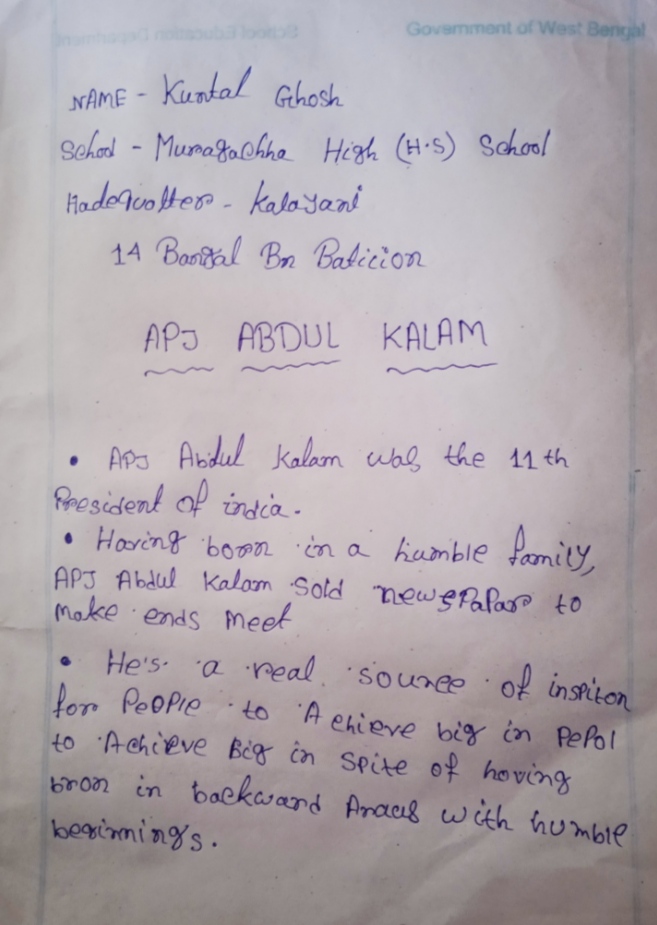 Government of West Bengal
School Education Department
NAME - Kuntal Ghosh
School - Muragachha High (H.S) School
Hadequolter - Kalayani
14 Bangal Bn Baticion
APJ ABDUL KALAM
• APJ Abdul Kalam was the 11th
President of india.
• Having boron in a humble family,
APJ Abdul Kalam sold newsPapar to
make ends meet
• He's a real source of inspiton
for PeOPle to Achieve big in PePol
to Achieve Big in Spite of hoving
bron in backward Araas with humble
beginnings.